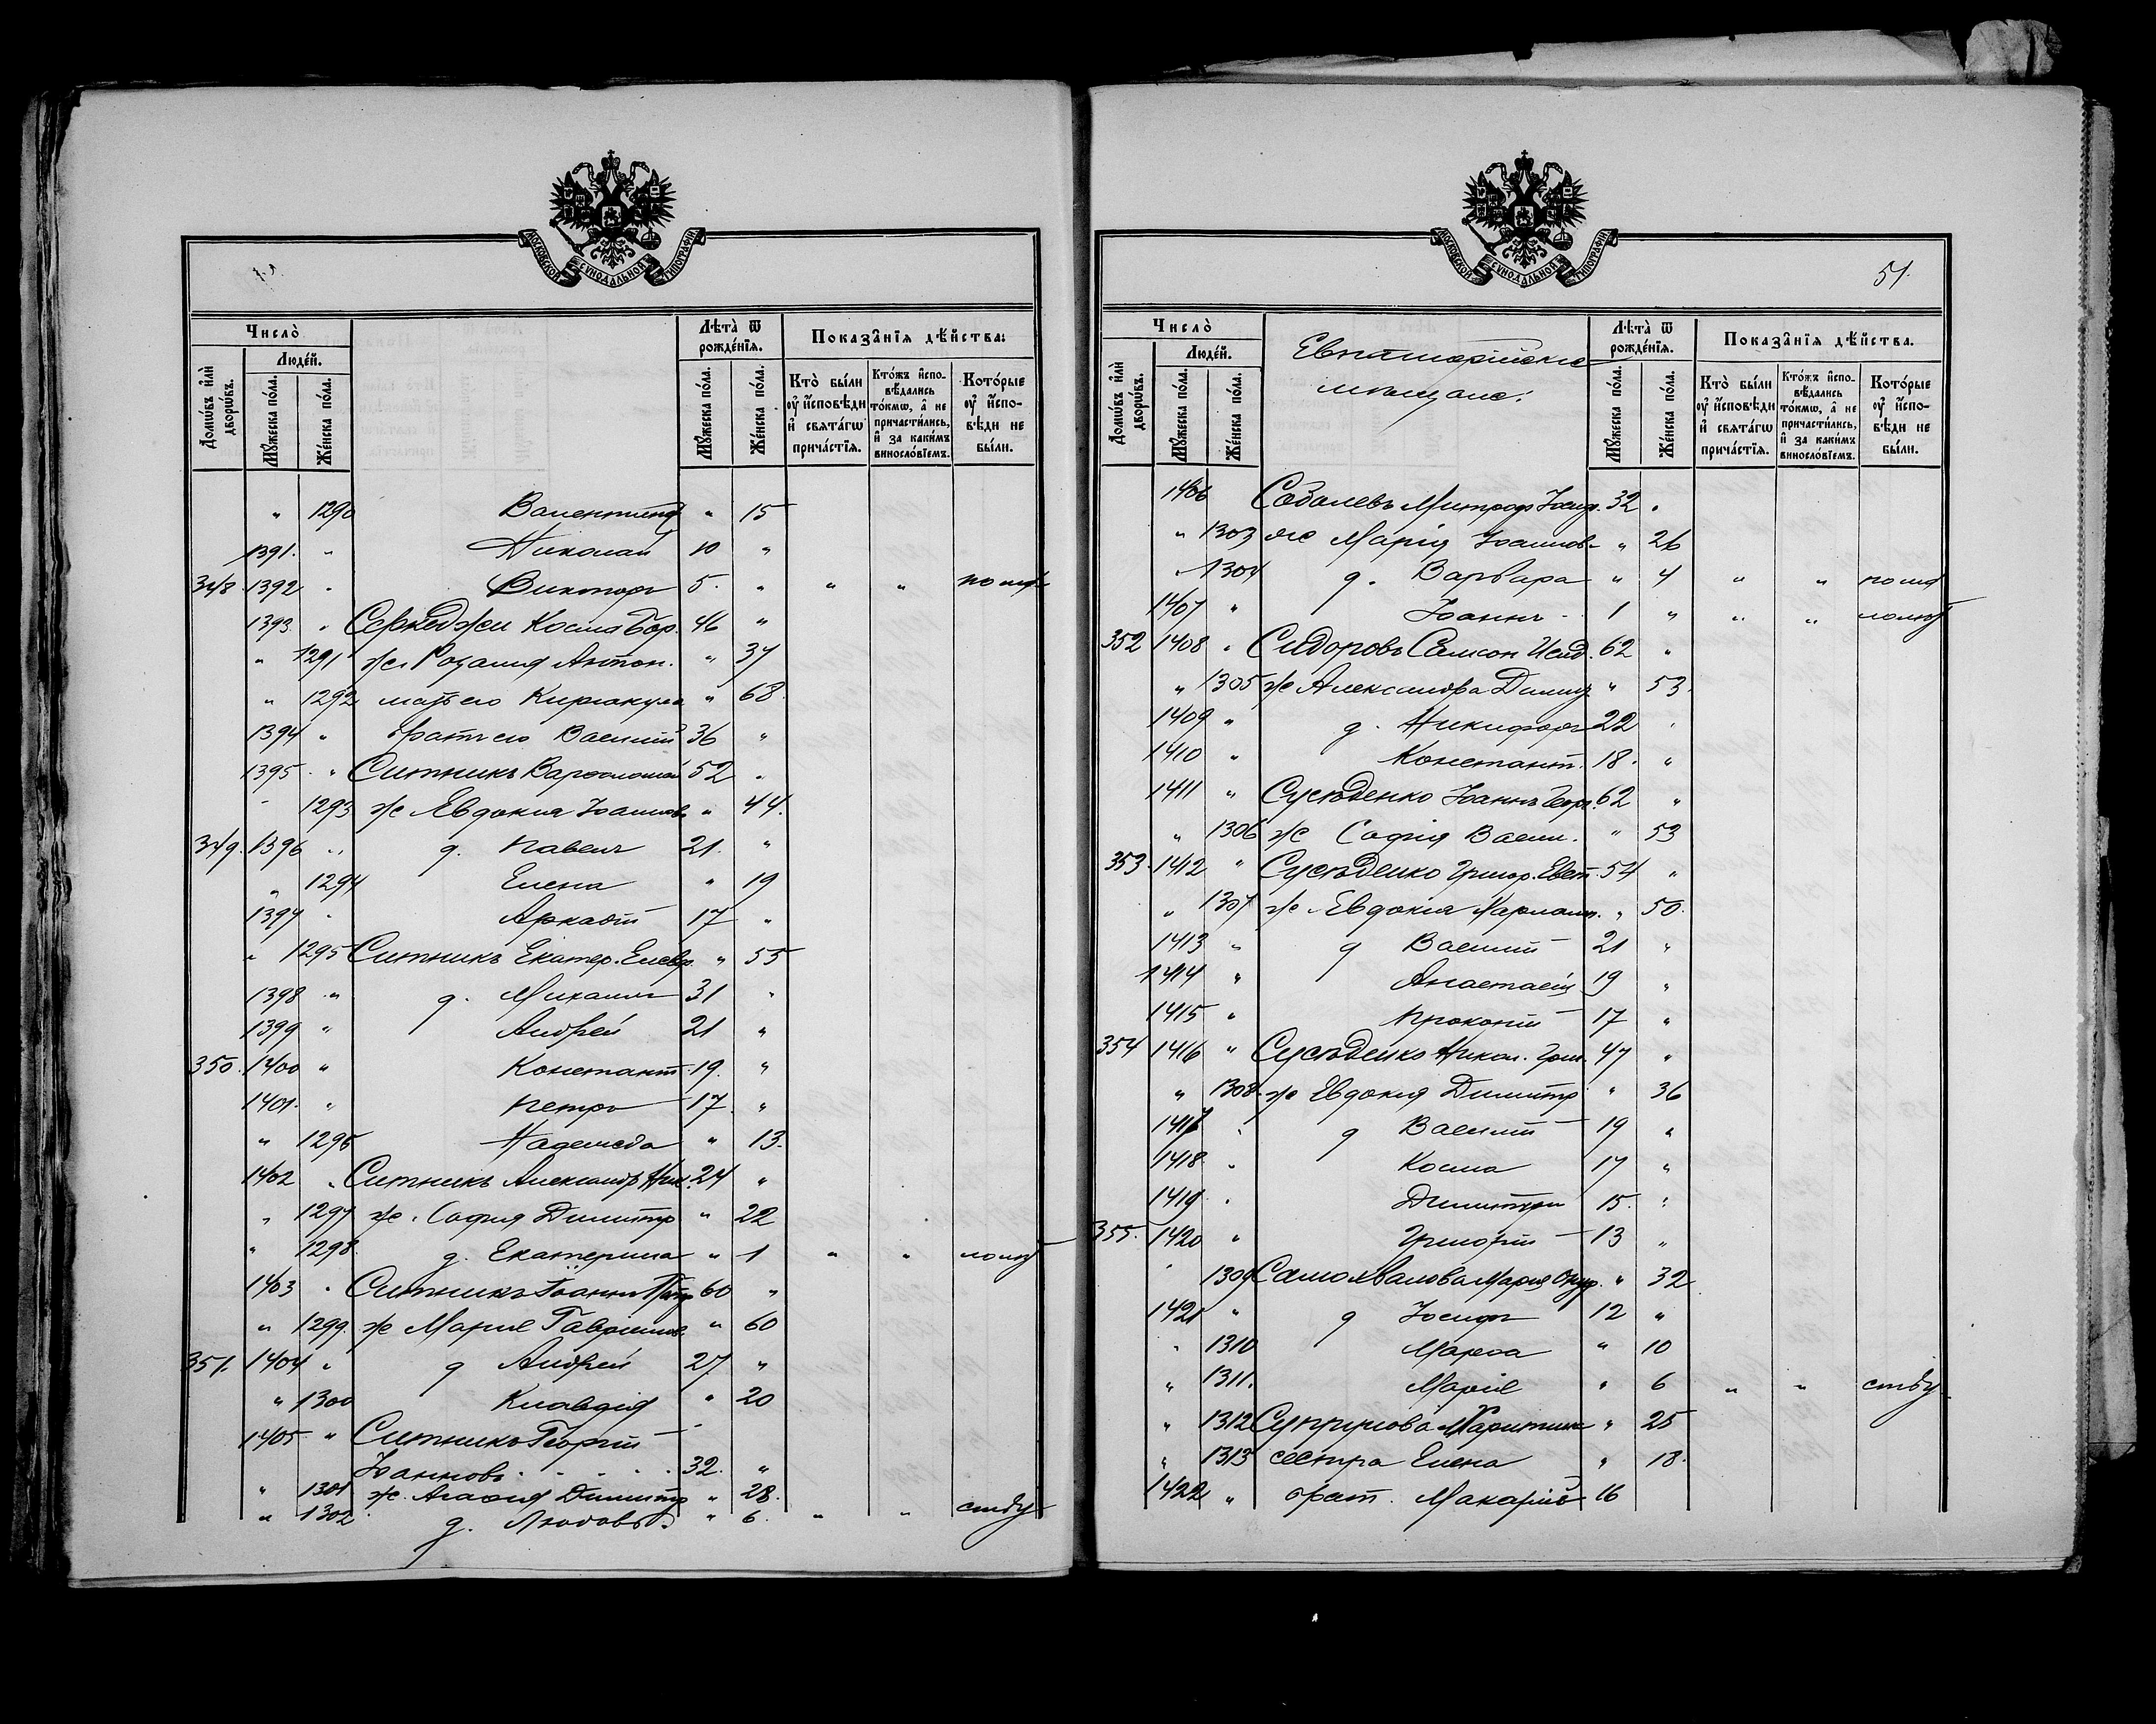 МОСКОВСКОЙ СѴНОДАЛЬНОЙ ТИПОГРАФІИ
Число̀
Людéй.
Домѡ́въ и҆лѝ дворѡ́въ.
Мꙋ́жеска по́ла.
Же́нска по́ла.
Лѣта̀ ѿ рожде́нїѧ.
Мꙋ́жеска по́ла.
Же́нска по́ла.
Показа̑нїѧ дѣ́йства:
Кто̀ бы́ли ᲂу҆ и҆сповѣ́ди и҆ свѧта́гѡ прича́стїѧ.
Кто́жъ и҆сповѣ́дались то́кмѡ, а҆ не причасти́лись, и҆ за каки́мъ винослови́емъ.
Кото́рые ᲂу҆ и҆сповѣ́ди не бы́ли.
" 1290 Валентина " 15
1391. " Николай 10 "
348 1392 " Викторъ 5. " " "
1393 " Козма Бор. 46 "
" 1291 ж. Розалия Антон. " 37
" 1292 мать его Кириакула " 68.
1394 " братъ его Василий 36 "
1395 " Ситникъ Варфоломей 52 "
" 1293 ж Евдокия Іоаннов " 44.
349. 1396 " д. Павелъ 21. "
" 1294 Елена " 19
1397 " Аркадій 17 "
" 1295 Ситникъ Екатер. " 55
1398 " д. Михаилъ 31 "
1399 " Андрей 21 "
350. 1400 " Константи 19. "
1401. " Петръ 17. "
" 1296 Надежда " 13.
1402 " Ситникъ Александръ Ник. 24 "
" 1297 ж. София Димитр " 22
" 1298. д. Екатерина " 1 " "
1403 " Ситникъ Іоаннъ Петр 60 "
" 1299. ж Мария Гавриилов. " 60
351. 1404 " д Андрей 27. "
" 1300 Клавдия " 20
1405 " Ситникъ Георгій
Іоанновъ 32. "
" 1301 ж. Агафия Димитр " 28.
" 1302 д. Любовь " 6. " "
МОСКОВСКОЙ СѴНОДАЛЬНОЙ ТИПОГРАФІИ
51.
Число̀
Людéй.
Домѡ́въ и҆лѝ дворѡ́въ.
Мꙋ́жеска по́ла.
Же́нска по́ла.
Евпаторійские
мѣщане.
Лѣта̀ ѿ рожде́нїѧ.
Мꙋ́жеска по́ла.
Же́нска по́ла.
Показа̑нїѧ дѣ́йства.
Кто̀ бы́ли ᲂу҆ и҆сповѣ́ди и҆ свѧта́гѡ прича́стїѧ.
Кто́жъ и҆сповѣ́дались то́кмѡ, а҆ не причасти́лись, и҆ за каки́мъ винослови́емъ.
Кото́рые ᲂу҆ и҆сповѣ́ди не бы́ли.
1406 Соболевъ Митроф Іосиф. 32 "
" 1303 ж Марія Іоаннов. " 26
" 1304 д. Варвара " 4 " "
1407 " Іоаннъ 1 " " "
352 1408 " Сидоровъ Самсон Исид. 62 "
" 1305 ж Александра Димит " 53.
1409 " д. Никифоръ 22 "
1410 " Константи. 18. "
1411 " Сусѣденко Іоаннъ Георг. 62 "
" 1306 ж София Васил. " 53
353. 1412 " Сусѣденко Григор. Евст. 54 "
" 1307 ж Евдокия " 50.
1413 " д Василій 21 "
1414 " Анастасій 19 "
1415 " Прокопій 17 "
354 1416 " Сусѣденко Никол. Григ. 47 "
" 1308. ж Евдокия Димитр " 36
1417 " д Василій 19 "
1418. " Косма 17 "
1419 " Димитрій 15. "
355. 1420 " Григорій 13 "
" 1309 Самохвалова Мария " 32
1421 " д Іосифъ 12 "
" 1310 Марфа " 10
" 1311. Марія " 6 " "
" 1312 Супрунова Харитина " 25
" 1313 сестра Елена " 18.
1422 " брат. Макарій 16